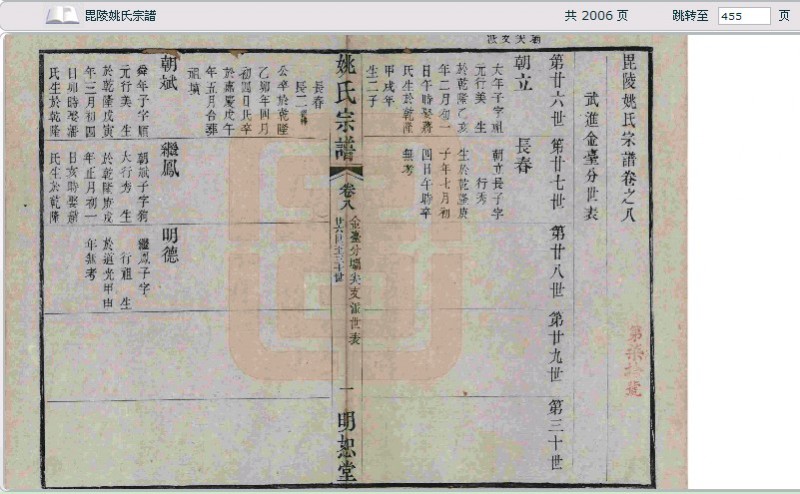 毘陵姚氏宗譜
共 2006 页
跳转至 455 页
毘陵姚氏宗譜卷之八
武進金臺分世表
第廿六世 第廿七世 第廿八世 第廿九世 第三十世
朝立
大年子字祖
元行美 生
於乾隆乙亥
年二月初一
日午時娶蕭
氏生於乾隆
甲戌年
生二子
長春
長二
公卒於乾隆
乙卯年四月
初四日氏卒
於嘉慶戊午
年五月合葬
祖塋
長春
朝立長子字
行秀
生於乾隆庚
子年七月初
四日午時卒
無考
姚氏宗譜
卷八
金臺分塘尖支派世表
廿六世至三十世
一
明恕堂
朝斌
舜年子字順
元行美 生
於乾隆戊寅
年三月初四
日卯時娶潘
氏生於乾隆
繼鳳
朝斌子字
大行秀 生
於乾隆庚戌
年正月初一
日亥時娶
氏生於乾隆
明德
繼鳳子字
行祖 生
於道光甲申
年無考